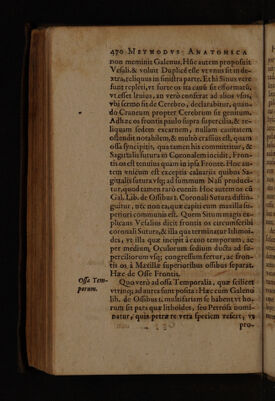 470 METHODVS ANATOMICA
non meminit Galenus. Hic autem proposuit
Vesali. & voluit Duplicē esse vt vnus sit in de-
xtra, reliquus in sinistra parte. Et hi Sinus vere
sunt repleti, vt forte os ita cauū sit efformatū,
vt esset leuius, an verò conferat ad alios vsus,
vbi sermo fit de Cerebro, declarabitur, quan-
do Craneum propter Cerebrum sit genitum.
Adhæc os frontis paulo supra supercilia, & re-
liquam sedem excarnem, nullam cauitatem
ostendit notabilem, & multò crassius est, quam
ossa syncipitis, quo tamen his committitur, &
Sagittalis sutura in Coronalem incidit; Fron-
tis os est tenuius quam in ipsa Fronte. Hoc au-
tem vnicum est exceptis caluariis quibus Sa-
gittalis sutura vsq; ad summum Nasi produci-
tur, quod tamen raró euenit. Hoc autem os cū
Gal. Lib. de Ossibus. Coronali Sutura distin-
guitur, nec non ea, quæ capiti cum maxilla su-
periori communis est. Quem Situm magis ex-
plicans Vesalius dicit frontis os circumscribi
coronali Sutura, & illa qua terminatur Isthmoi-
des, vt illa quæ incipit à cauo temporum, ac
per medium, Oculorum sedium ducta ad su-
perciliorum vsq; congressum fertur, ac fron-
tis os à Maxillæ superioribus ossibus separat.
Hæc de Osse Frontis.
Ossa Tem-
porum.
Quo verò ad ossa Temporalia, quæ scilicet
vtrinq; ad aures sunt posita: Hæc cum Galeno
lib. de Ossibus. 1. multifariam se habent vt ho-
rum sit pars quæ lithoides, seu Petrosa nomi-
natur, quia petræ re vera speciem refert, vt
pro-